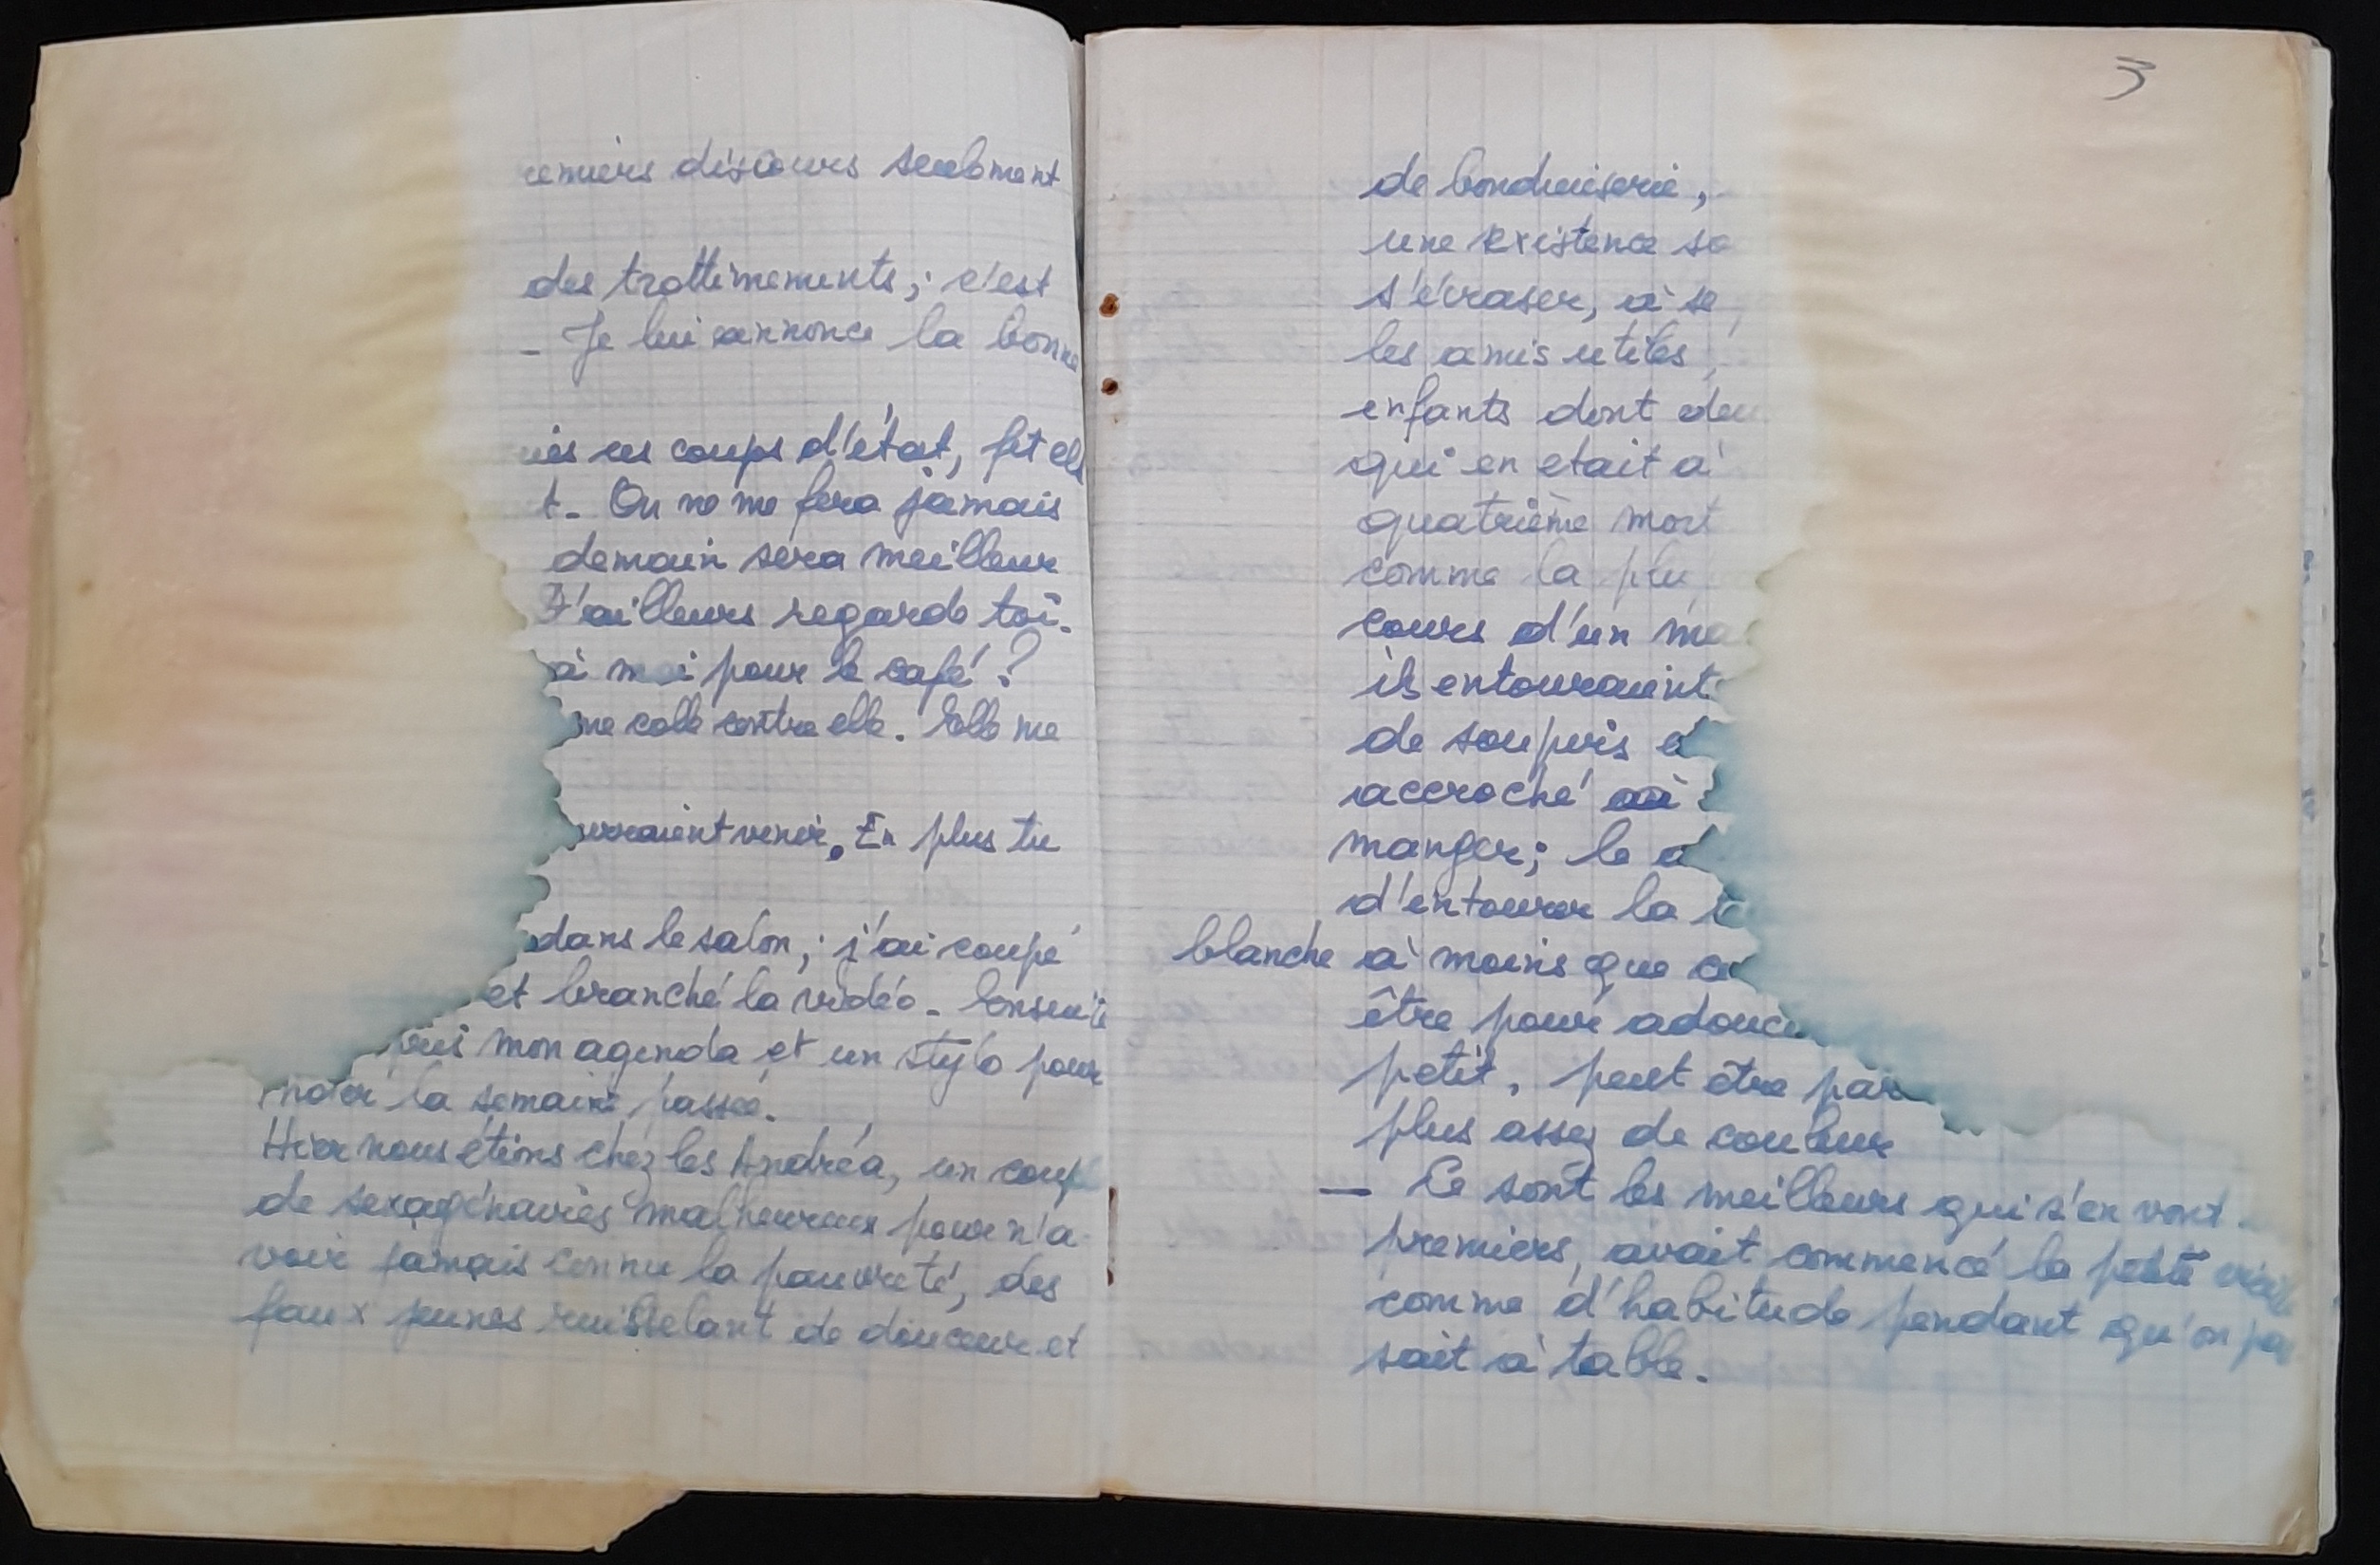 remiers discours seulement
des trottinements ; c'est
- Je lui annonce la bonne
ces coups d'état, fit elle
t. On ne me fera jamais
demain sera meilleur
D'ailleurs regarde toi.
à moi pour le café ?
me colle contre elle. Elle me
urraient venir. En plus tu
dans le salon ; j'ai coupé
et branché la vidéo. Ensuite
pris mon agenda et un stylo pour
noter la semaine passée.
Hier nous étions chez les Andréa, un coupl
de sexagénaires malheureux pour n'a
voir jamais connu la pauvreté, des
faux jeunes ruisselant de douceur et
3
de bondieuserie,
une existence so
s'écraser, à se
les amis utiles,
enfants dont deu
qui en etait à
quatrième mort
comme la plu
cours d'un ma
ils entouraient
de soupirs e
accroché
manger ; le d
d'entourer la
blanche à moins que ce
être pour adouci
petit, peut être par
plus assez de couleur
— Ce sont les meilleurs qui s'en vont
premiers, avait commencé la petite
comme d'habitude pendant qu'on pas
sait à table.